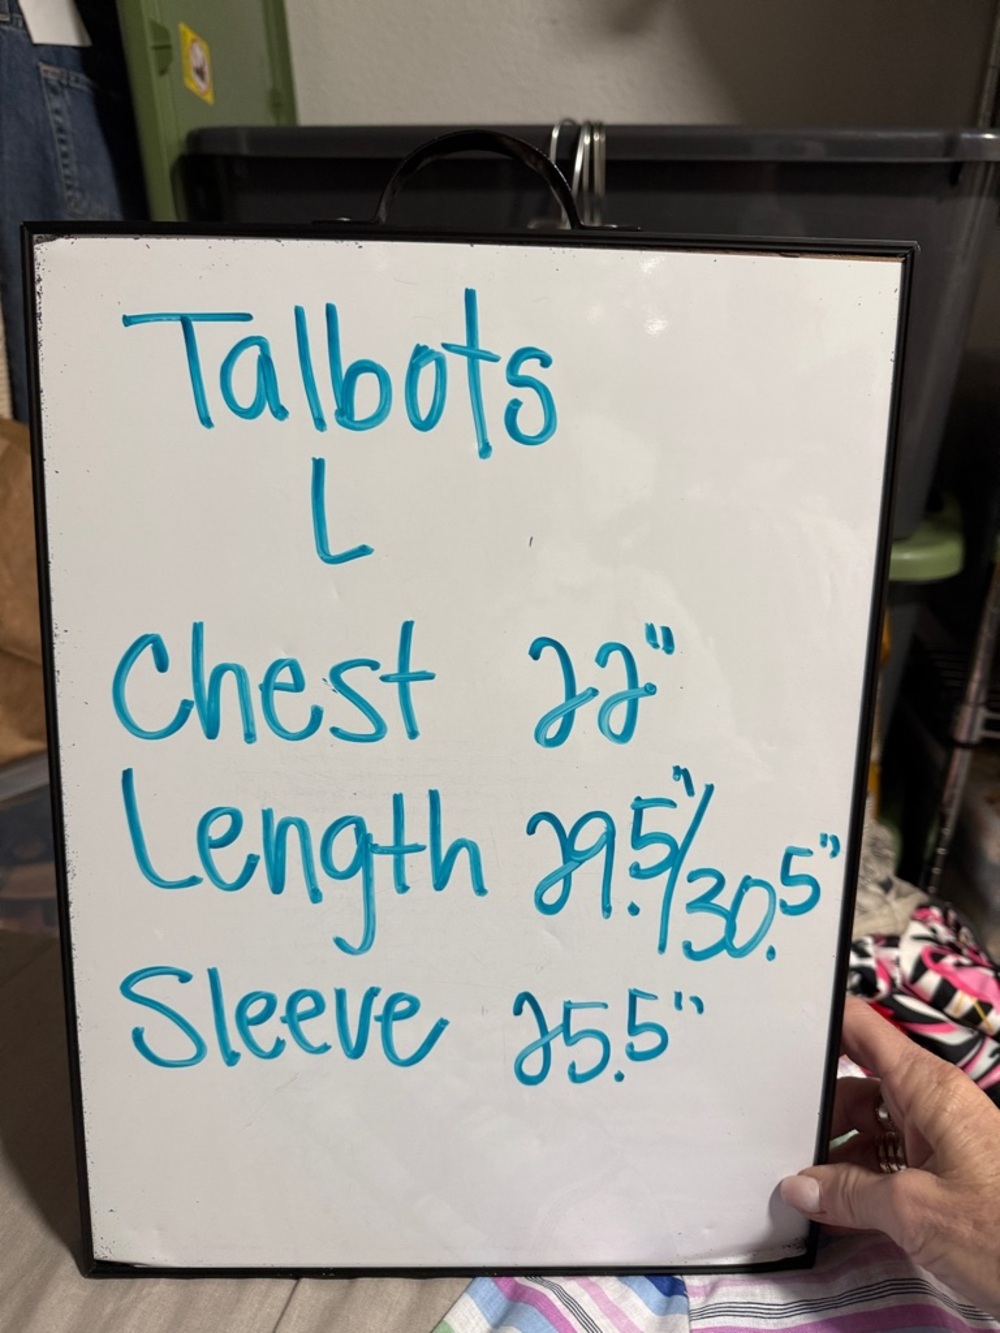 Talbots
L
Chest 22"
Length 29.5"/30.5"
Sleeve 25.5"